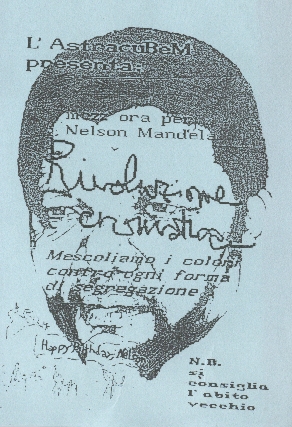 L' AstracuBeM
presenta:
mezz'ora per
Nelson Mandela
Rivoluzione
Cromatica
Mescoliamo i colori
contro ogni forma
di segregazione
Happy Birthday
N.B.
si
consiglia
l'abito
vecchio